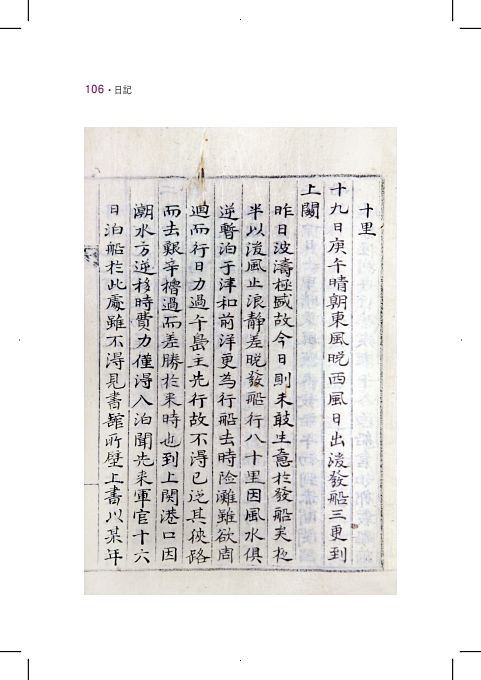 106 • 日記
十里
十九日庚午晴朝東風晩西風日出後發船三更到
上關
昨日波濤極盛故今日則未敢生意於發船矣夜
半以後風止浪靜差晩發船行八十里因風水俱
逆暫泊于津和前洋更為行船去時險灘雖欲周
迴而行日力過午島主先行故不得已從其狹路
而去艱辛櫓過而差勝於来時也到上関港口因
潮水方逆移時費力僅得入泊聞先来軍官十六
日泊船於此處雖不得見書舘所壁上書以某年